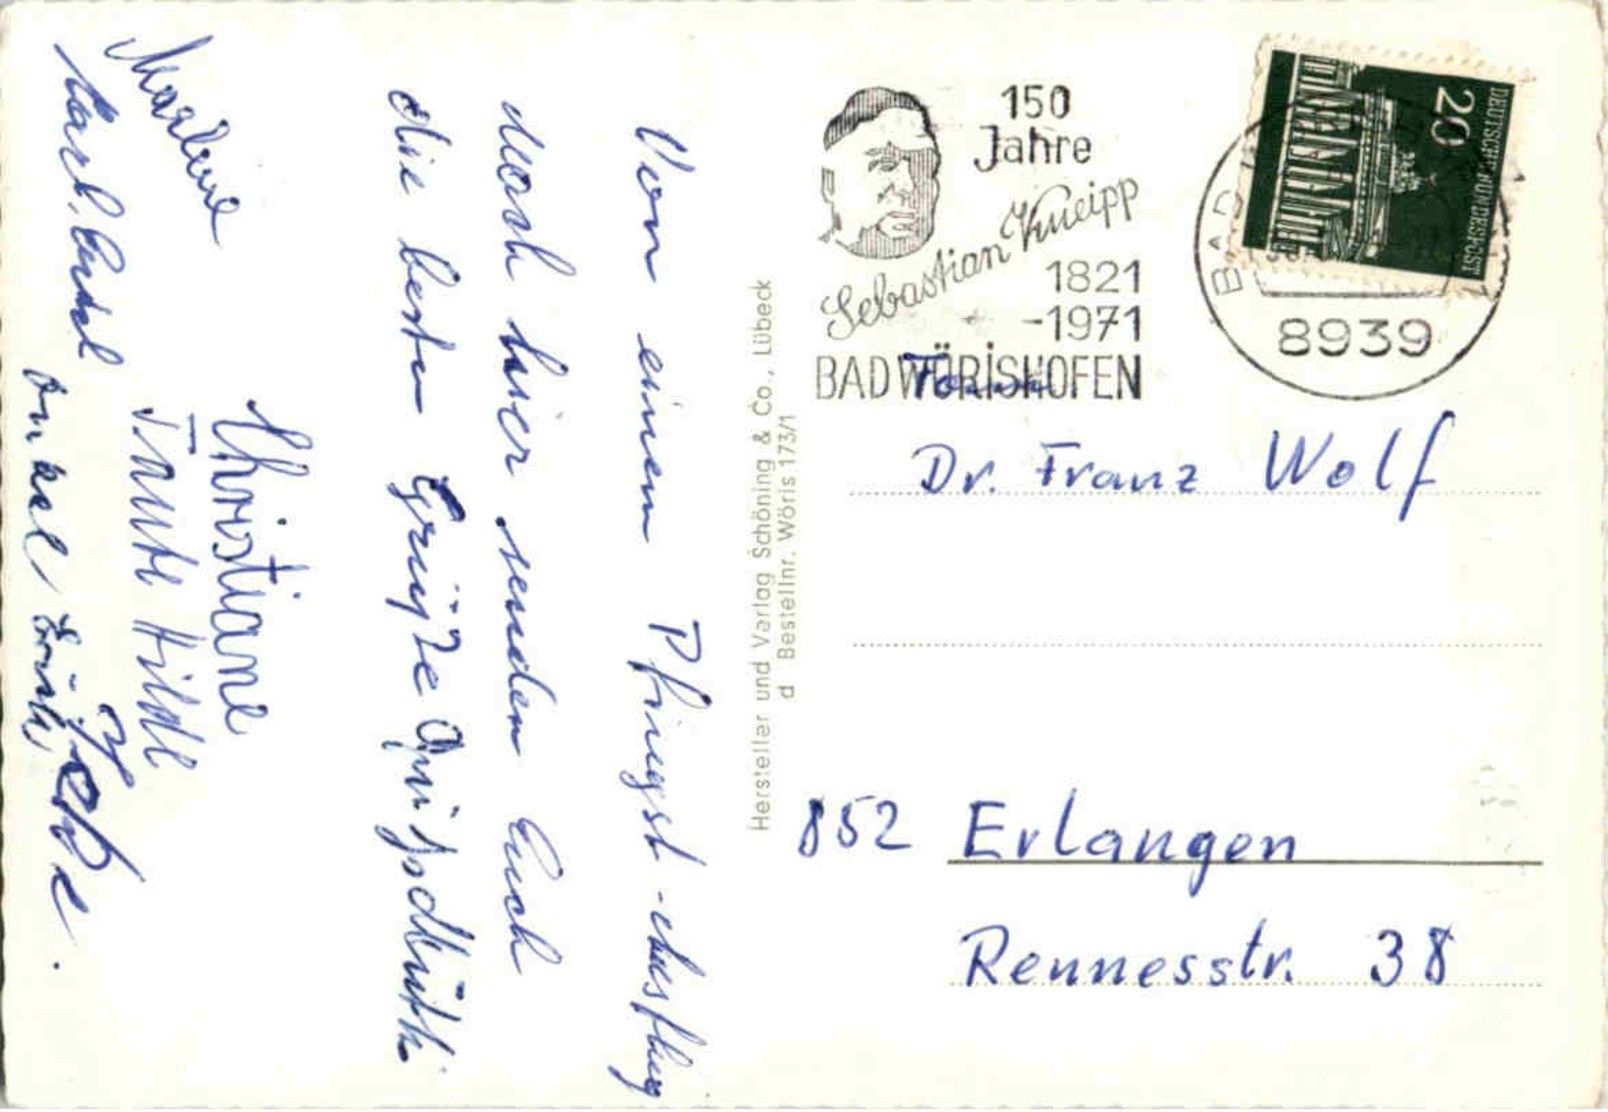 Von einem Pfingst-Ausflug
nach hier senden Euch
die besten Grüße
Christiane
Tante Hildl
Marline
Onkel
Hersteller und Verlag Schöning & Co., Lübeck
d Bestellnr. Wöris 173/1
150
Jahre
Sebastian Kneipp
1821
-1971
BAD WÖRISHOFEN
20
DEUTSCHE BUNDESPOST
BAD
8939
Dr. Franz Wolf
852 Erlangen
Rennesstr. 38